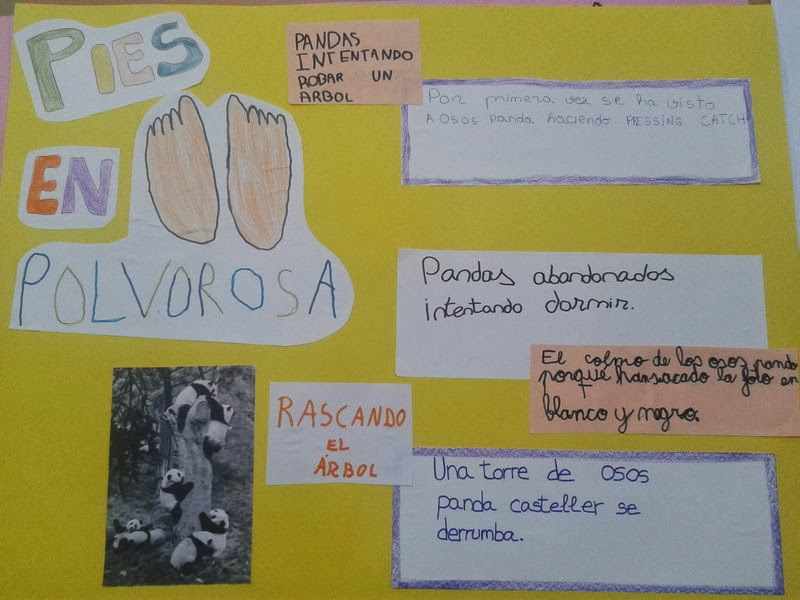 PIES
EN
POLVOROSA
PANDAS
INTENTANDO
ROBAR UN
ARBOL
Por primera vez se ha visto
A OSOS PANDA haciendo PRESSING CATCH
Pandas abandonados
intentando dormir.
El colmo de los osos panda
porque han sacado la foto en
blanco y negro.
RASCANDO
EL
ÁRBOL
Una torre de osos
panda casteller se
derrumba.